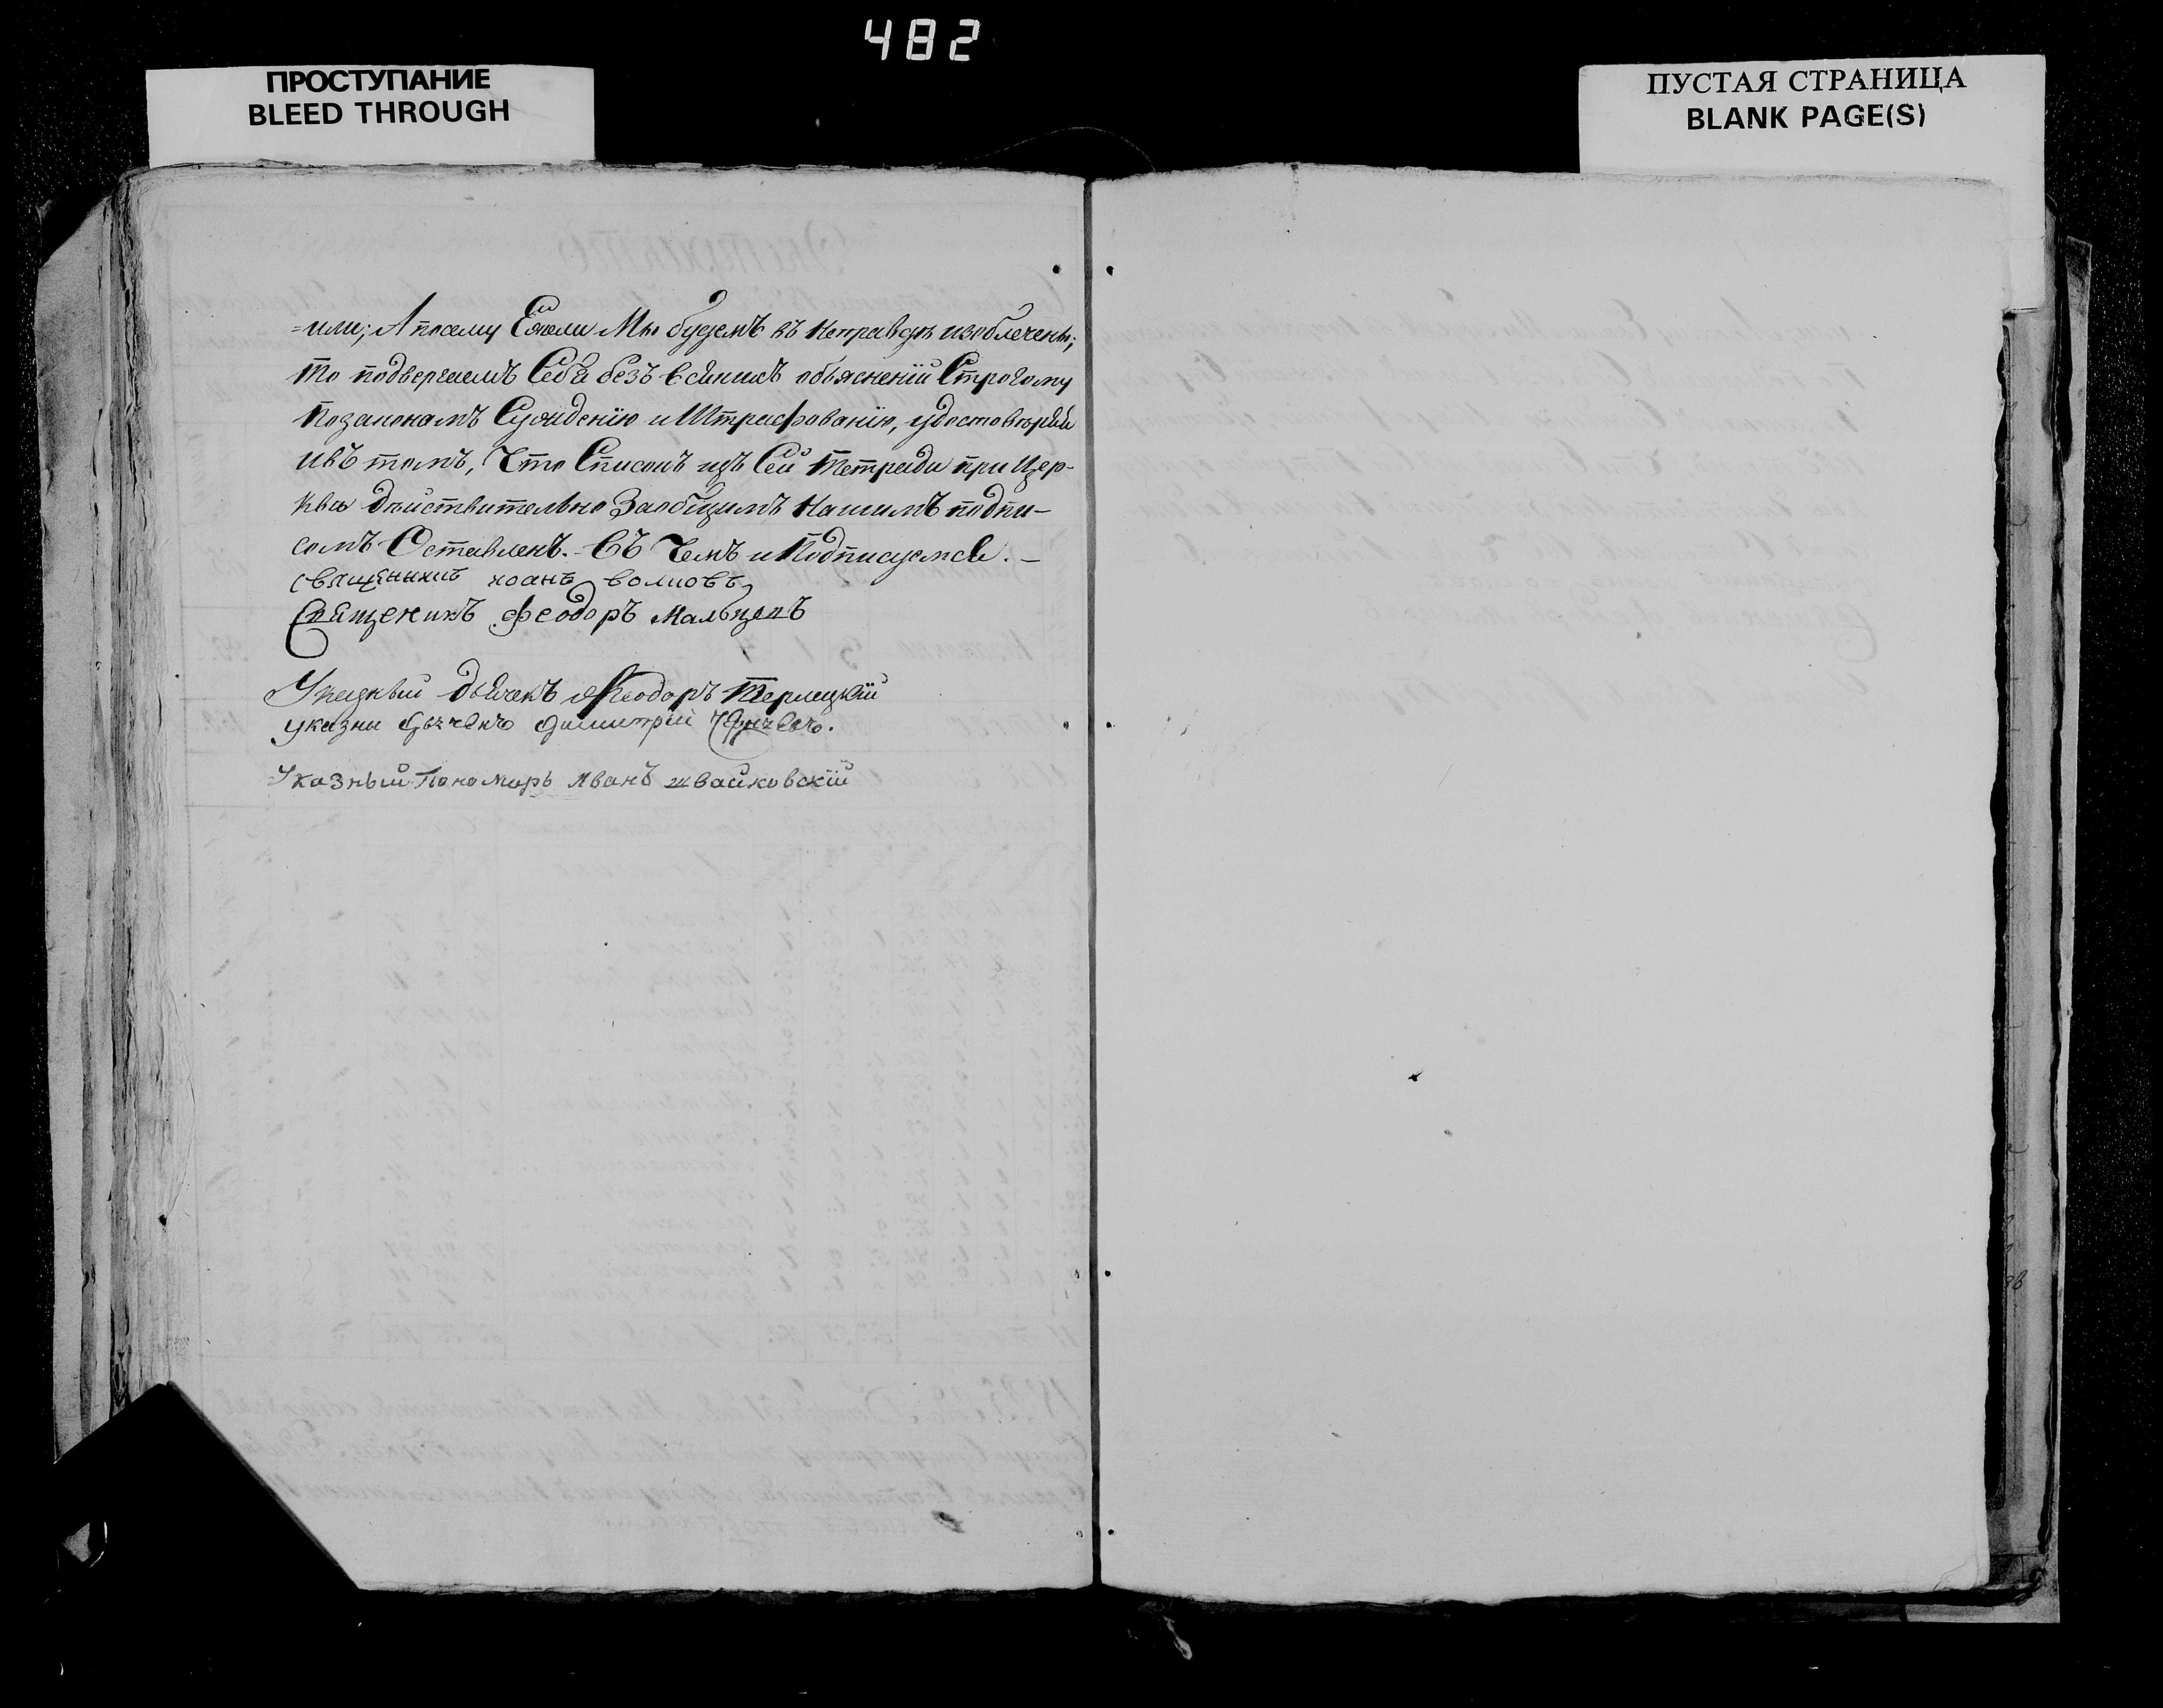 482
ПРОСТУПАНИЕ
BLEED THROUGH
ПУСТАЯ СТРАНИЦА
BLANK PAGE(S)
=или; А посему Ежели Мы будемъ въ неправдѣ изобличены;
то подвергаемъ Себя безъ всякихъ объясненій Строгому
Позаконамъ Сужденію и Штрафованію, удостовѣряя
ивъ томъ, Что Списокъ изъ Сей тетради при Цер-
кви дѣйствительно Заобщимъ Нашимъ подпи-
сомъ Оставленъ. Въ Чемъ и Подписуемся. –
священникъ иоанъ волковъ
Священикъ Феодоръ Мальцевъ
Указный дьячекъ Феодоръ Терлецкій
указни дьячекъ димитрій
Указный Пономарь Иванъ жвайковскій